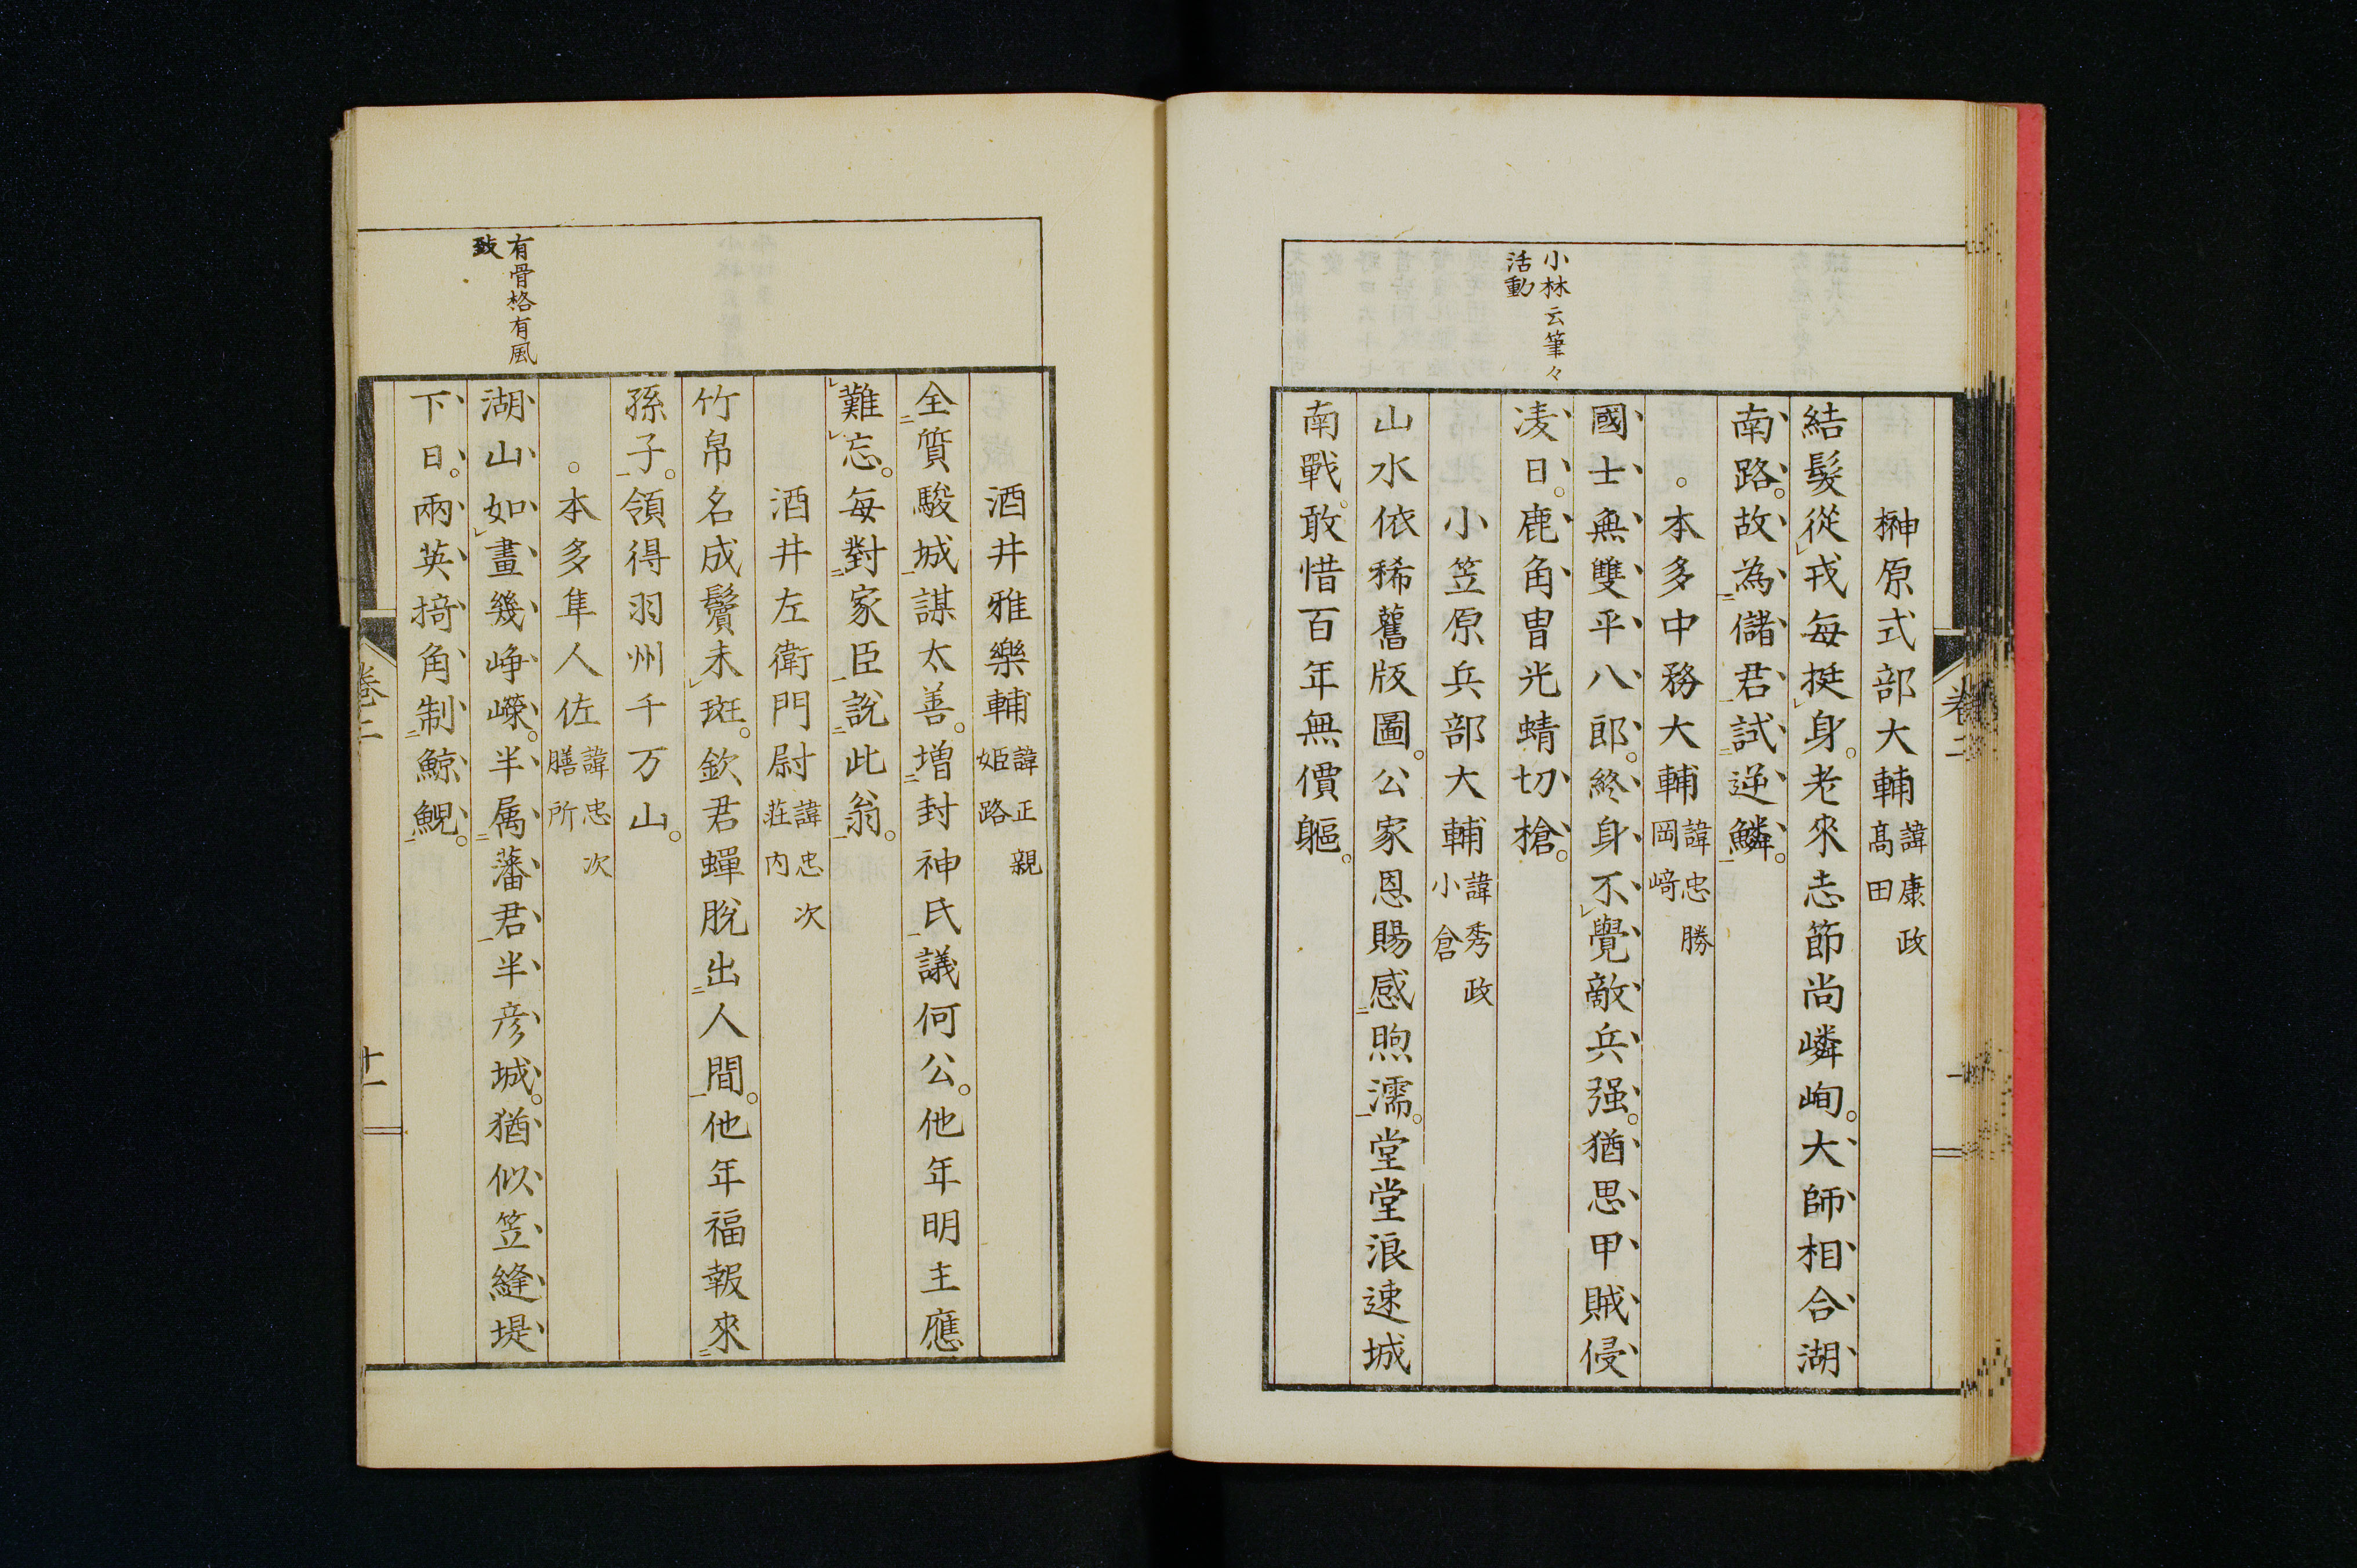 小林云筆々
活動
榊原式部大輔 諱康政 髙田
結髮從戎每挺身。老來志節尚嶙峋。大師相合湖
南路。故為儲君試逆鱗。
。本多中務大輔 諱忠勝 岡﨑
國士無雙平八郎。終身不覺敵兵强。猶思甲賊侵
凌日。鹿角冑光蜻切槍。
小笠原兵部大輔 諱秀政 小倉
山水依稀舊版圖。公家恩賜感煦濡。堂堂浪速城
南戰。敢惜百年無價軀。
卷二
有骨格有風
致
酒井雅樂輔 諱正親 姬路
全質駿城謀太善。增封神氏議何公。他年明主應
難忘。每對家臣說此翁。
酒井左衛門尉 諱忠次 莊內
竹帛名成鬢未斑。欽君蟬脫出人間。他年福報來
孫子。領得羽州千万山。
。本多隼人佐 諱忠次 膳所
湖山如畫幾崢嶸。半属藩君半彦城。猶似笠縫堤
下日。兩英掎角制鯨鯢。
卷二
十一